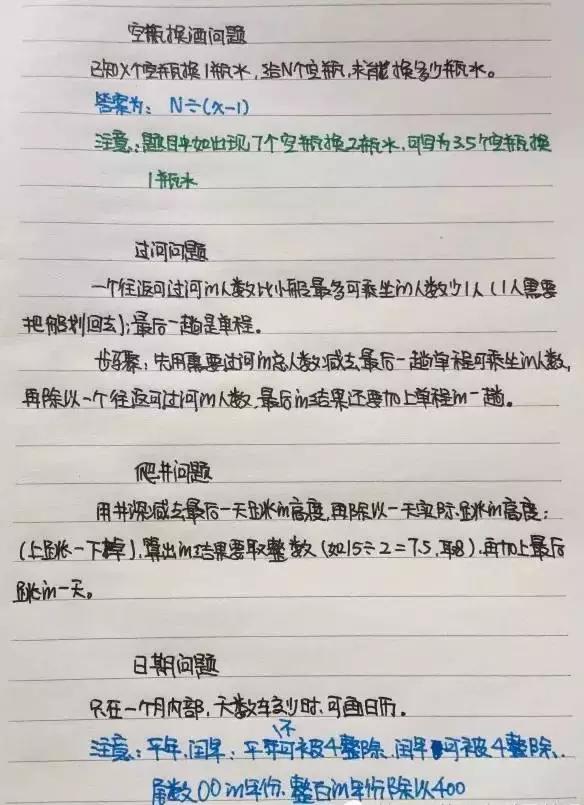 空瓶换酒问题
已知X个空瓶换1瓶水,给N个空瓶,求能换多少瓶水。
答案为: N÷(x-1)
注意:题目中如出现7个空瓶换2瓶水,可写为3.5个空瓶换
1瓶水
过河问题
一个往返可过河的人数比小船最多可乘坐的人数少1人(1人需要
把船划回去);最后一趟是单程。
步骤:先用需要过河的总人数减去最后一趟单程可乘坐的人数,
再除以一个往返可过河的人数,最后的结果还要加上单程的一趟。
爬井问题
用井深减去最后一天跳的高度,再除以一天实际跳的高度:
(上跳-下掉),算出的结果要取整数(如15÷2=7.5,取8),再加上最后
跳的一天。
日期问题
只在一个月内部,天数较少时,可画日历。
注意:平年、闰年:平年不可被4整除,闰年可被4整除、
尾数00的年份,整百的年份除以400